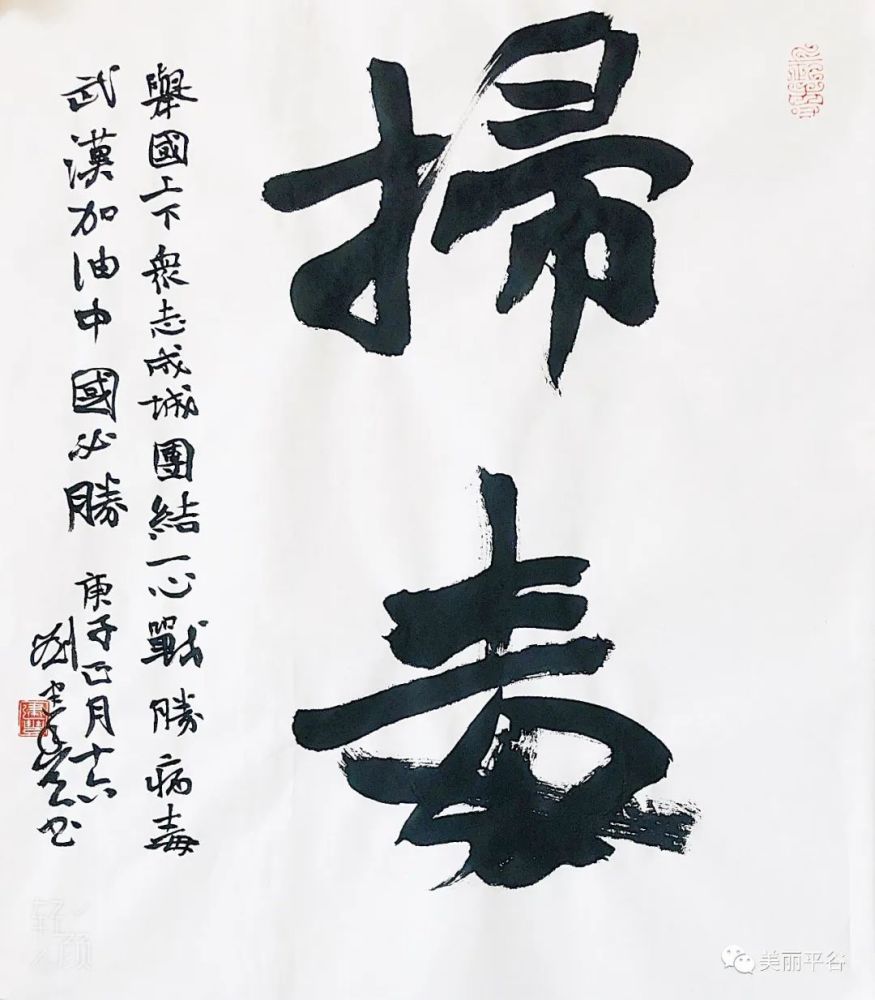 掃毒
舉國上下衆志成城團結一心戰勝病毒
武漢加油中國必勝
庚子正月十六
劉
书
轻颜
美丽平谷